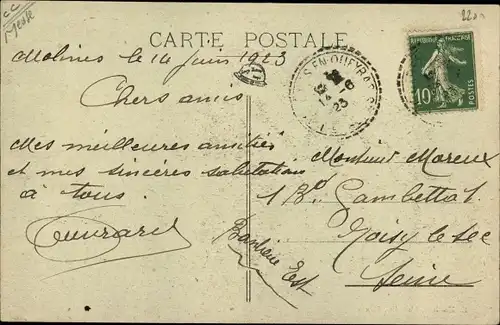 CARTE POSTALE
Molines le 14 juin 1923
Chers amis
Mes meilleures amitiés
et mes sincères salutations
à tous.
Banlieue Est
Monsieur Moreux
1 Bd Gambetta 1.
Noisy le sec
Seine
EN QUEYRAS
6
23
REPUBLIQUE FRANÇAISE
10c
POSTES